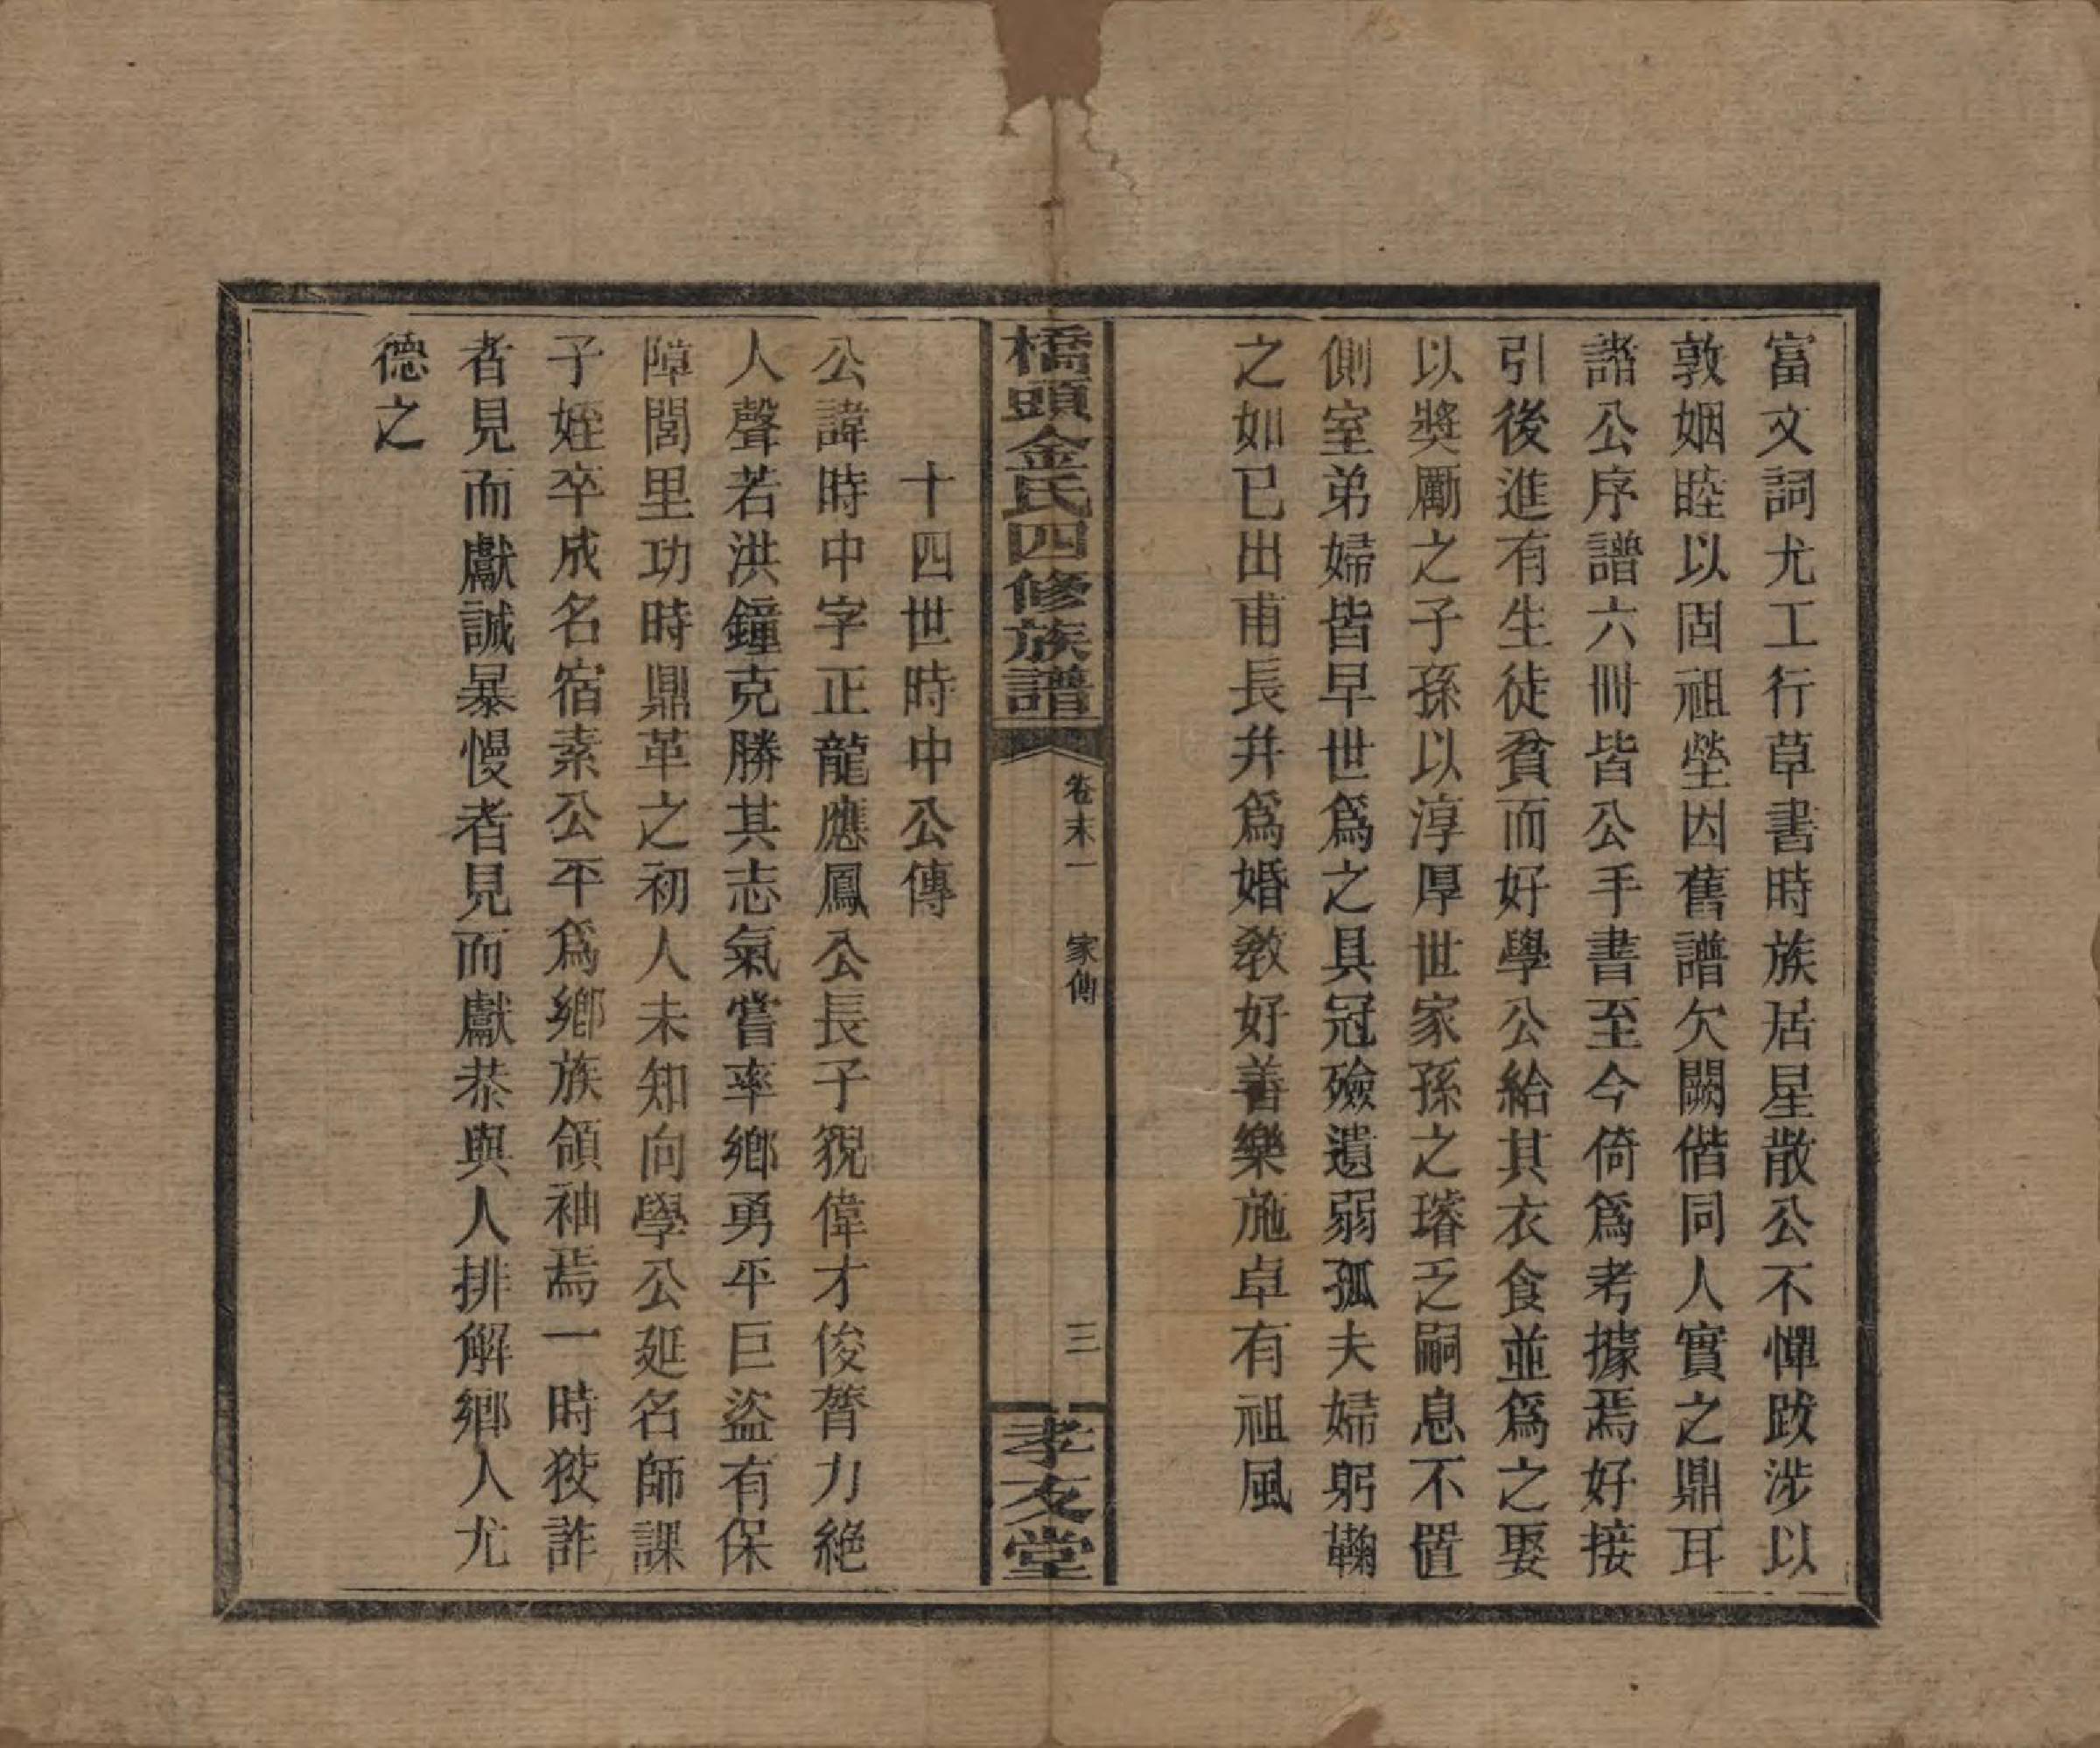 富文詞尤工行草書時族居星散公不憚跋涉以
敦姻睦以固祖塋因舊譜欠闕偕同人實之鼎耳
諸公序譜六冊皆公手書至今倚爲考據焉好接
引後進有生徒貧而好學公給其衣食並爲之娶
以獎勵之子孫以淳厚世家孫之璿乏嗣息不置
側室弟婦皆早世爲之具冠殮遺弱孤夫婦躬鞠
之如已出甫長幷爲婚敎好善樂施卓有祖風
橋頭金氏四修族譜
卷末一
家傳
三
孝友堂
十四世時中公傳
公諱時中字正龍應鳳公長子貌偉才俊膂力絕
人聲若洪鐘克勝其志氣嘗率鄉勇平巨盜有保
障閭里功時鼎革之初人未知向學公延名師課
子姪卒成名宿素公平爲鄉族領袖焉一時狡詐
者見而獻誠暴慢者見而獻恭與人排解鄉人尤
德之